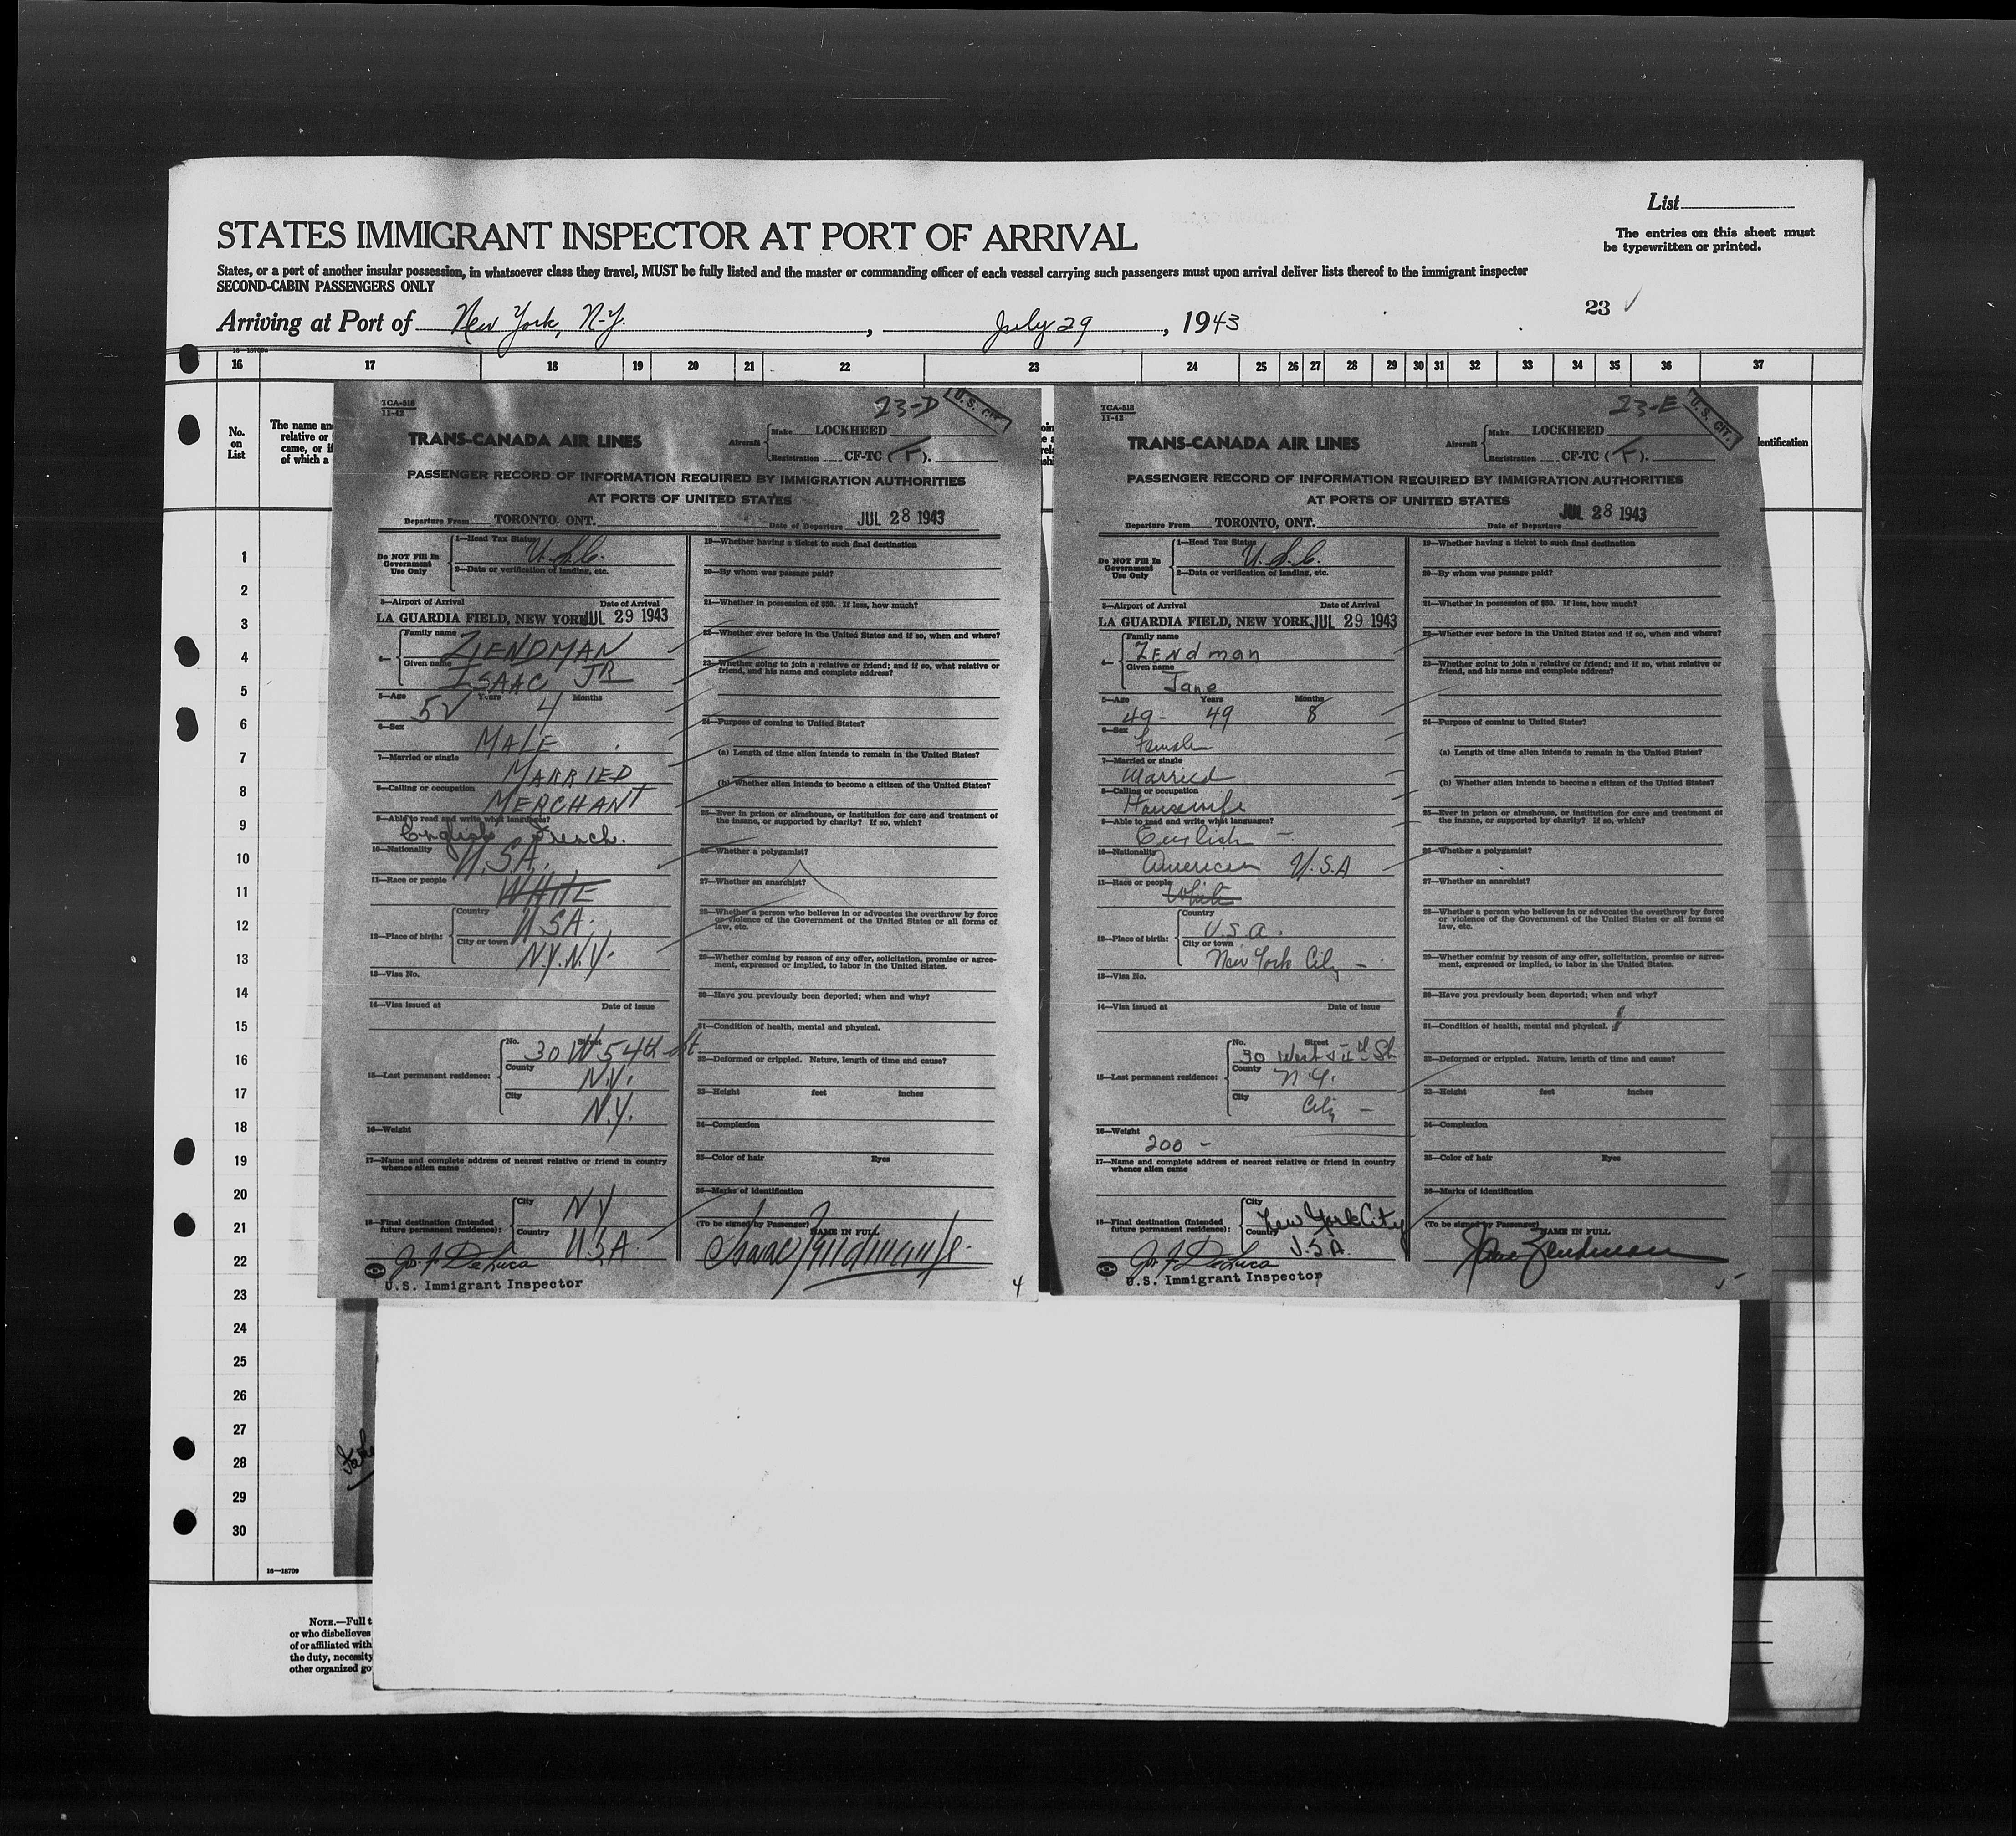 List
STATES IMMIGRANT INSPECTOR AT PORT OF ARRIVAL
The entries on this sheet must
be typewritten or printed.
States, or a port of another insular possession, in whatsoever class they travel, MUST be fully listed and the master or commanding officer of each vessel carrying such passengers must upon arrival deliver lists thereof to the immigrant inspector
SECOND-CABIN PASSENGERS ONLY
Arriving at Port of New York, N.Y. , July 29 , 1943
23 ✓
16 17 18 19 20 21 22 23 24 25 26 27 28 29 30 31 32 33 34 35 36 37
No.
on
List
The name an
relative or
came, or if
of which a
entification
1
2
3
4
5
6
7
8
9
10
11
12
13
14
15
16
17
18
19
20
21
22
23
24
25
26
27
28
29
30
16—18709
NOTE.—Full t
or who disbelieves
of or affiliated with
the duty, necessity
other organized go
TCA-518
11-42
23-D
U.S. CIT.
TRANS-CANADA AIR LINES
Aircraft
Make LOCKHEED
Registration CF-TC (T).
PASSENGER RECORD OF INFORMATION REQUIRED BY IMMIGRATION AUTHORITIES
AT PORTS OF UNITED STATES
Departure From TORONTO, ONT. Date of Departure JUL 28 1943
Do NOT Fill In
Government
Use Only
1—Head Tax Status U.S.C.
2—Data or verification of landing, etc.
3—Airport of Arrival Date of Arrival
LA GUARDIA FIELD, NEW YORK JUL 29 1943
4—
Family name ZENDMAN
Given name ISAAC JR
5—Age 52 Years 4 Months
6—Sex MALE
7—Married or single MARRIED
8—Calling or occupation MERCHANT
9—Able to read and write what languages?
English French.
10—Nationality U.S.A.
11—Race or people WHITE
12—Place of birth:
Country USA.
City or town N.Y. N.Y.
13—Visa No.
14—Visa issued at Date of issue
15—Last permanent residence:
No. Street 30 W 54th St
County N.Y.
City N.Y.
16—Weight
17—Name and complete address of nearest relative or friend in country
whence alien came
18—Final destination (Intended
future permanent residence):
City NY
Country U.S.A.
Jo. F. DeLuca
U.S. Immigrant Inspector
19—Whether having a ticket to such final destination
20—By whom was passage paid?
21—Whether in possession of $50. If less, how much?
22—Whether ever before in the United States and if so, when and where?
23—Whether going to join a relative or friend; and if so, what relative or
friend, and his name and complete address?
24—Purpose of coming to United States?
(a) Length of time alien intends to remain in the United States?
(b) Whether alien intends to become a citizen of the United States?
25—Ever in prison or almshouse, or institution for care and treatment of
the insane, or supported by charity? If so, which?
26—Whether a polygamist?
27—Whether an anarchist?
28—Whether a person who believes in or advocates the overthrow by force
or violence of the Government of the United States or all forms of
law, etc.
29—Whether coming by reason of any offer, solicitation, promise or agree-
ment, expressed or implied, to labor in the United States.
30—Have you previously been deported; when and why?
31—Condition of health, mental and physical.
32—Deformed or crippled. Nature, length of time and cause?
33—Height feet inches
34—Complexion
35—Color of hair Eyes
36—Marks of identification
(To be signed by Passenger) NAME IN FULL
Isaac Zendman Jr.
4
TCA-518
11-42
23-E
U.S. CIT.
TRANS-CANADA AIR LINES
Aircraft
Make LOCKHEED
Registration CF-TC (T).
PASSENGER RECORD OF INFORMATION REQUIRED BY IMMIGRATION AUTHORITIES
AT PORTS OF UNITED STATES
Departure From TORONTO, ONT. Date of Departure JUL 28 1943
Do NOT Fill In
Government
Use Only
1—Head Tax Status U.S.C.
2—Data or verification of landing, etc.
3—Airport of Arrival Date of Arrival
LA GUARDIA FIELD, NEW YORK, JUL 29 1943
4—
Family name Zendman
Given name
Jane
5—Age Years Months
49 - 49 8
6—Sex Female
7—Married or single
Married
8—Calling or occupation
Housewife
9—Able to read and write what languages?
English -
10—Nationality American U.S.A
11—Race or people White
12—Place of birth:
Country U.S.A.
City or town New York City -
13—Visa No.
14—Visa issued at Date of issue
15—Last permanent residence:
No. Street 30 West 54th St
County N.Y.
City City -
16—Weight 200 -
17—Name and complete address of nearest relative or friend in country
whence alien came
18—Final destination (Intended
future permanent residence):
City New York City
Country U.S.A.
Jo. F. DeLuca
U.S. Immigrant Inspector
19—Whether having a ticket to such final destination
20—By whom was passage paid?
21—Whether in possession of $50. If less, how much?
22—Whether ever before in the United States and if so, when and where?
23—Whether going to join a relative or friend; and if so, what relative or
friend, and his name and complete address?
24—Purpose of coming to United States?
(a) Length of time alien intends to remain in the United States?
(b) Whether alien intends to become a citizen of the United States?
25—Ever in prison or almshouse, or institution for care and treatment of
the insane, or supported by charity? If so, which?
26—Whether a polygamist?
27—Whether an anarchist?
28—Whether a person who believes in or advocates the overthrow by force
or violence of the Government of the United States or all forms of
law, etc.
29—Whether coming by reason of any offer, solicitation, promise or agree-
ment, expressed or implied, to labor in the United States.
30—Have you previously been deported; when and why?
31—Condition of health, mental and physical.
32—Deformed or crippled. Nature, length of time and cause?
33—Height feet inches
34—Complexion
35—Color of hair Eyes
36—Marks of identification
(To be signed by Passenger) NAME IN FULL
Jane Zendman
5